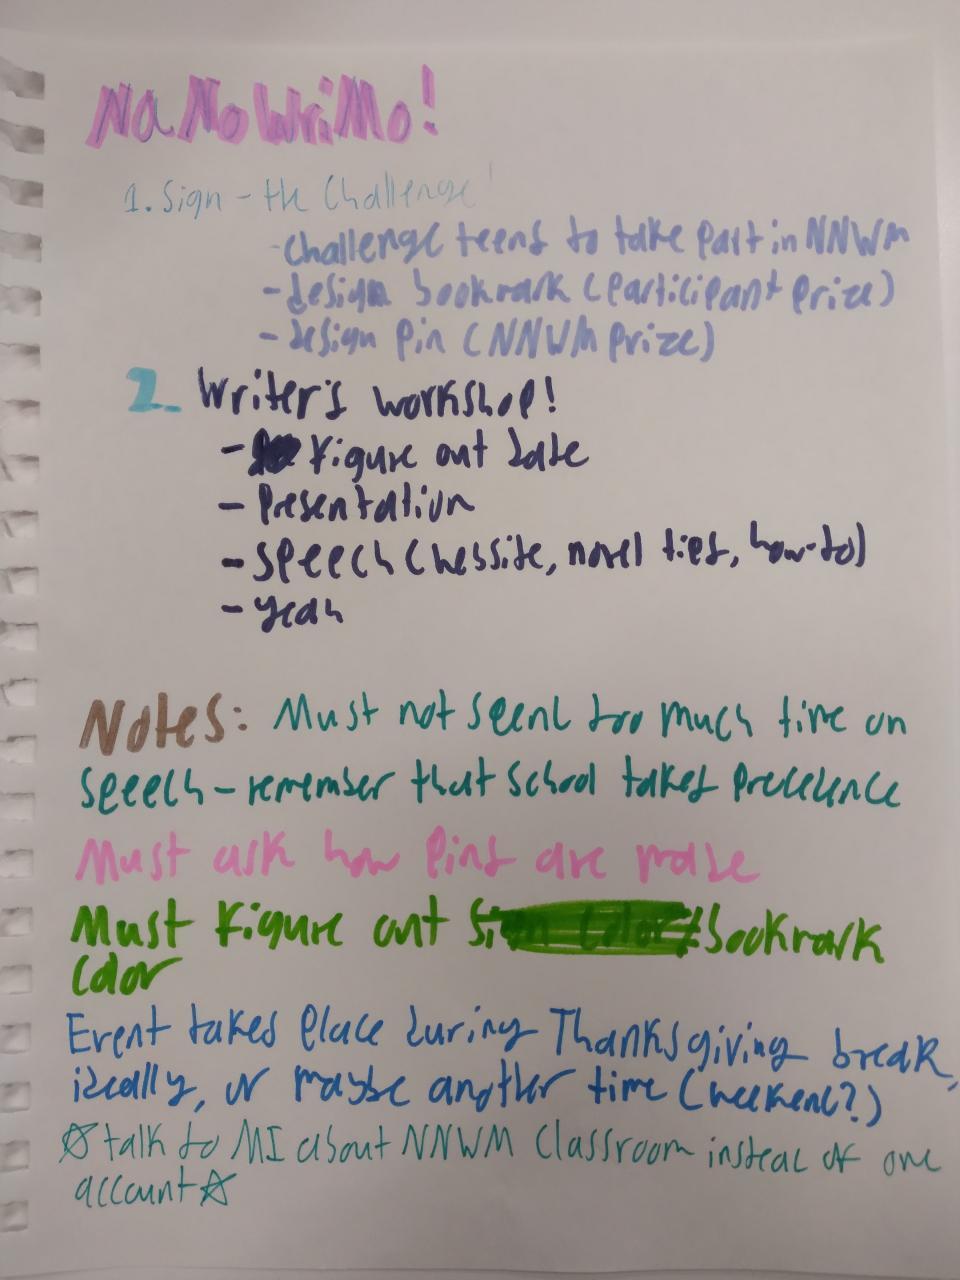 NaNoWriMo!
1. Sign - the Challenge!
- Challenge teens to take part in NNWM
- design bookmark (participant prize)
- design pin (NNWM prize)
2. Writer's workshop!
- Figure out date
- Presentation
- speech (website, novel tips, how-to)
- yeah
Notes: Must not spend too much time on
speech - remember that school takes precedence
Must ask how pins are made
Must figure out bookmark
color
Event takes place during Thanksgiving break,
ideally, or maybe another time (weekend?)
☆ talk to MI about NNWM Classroom instead of one
account ☆